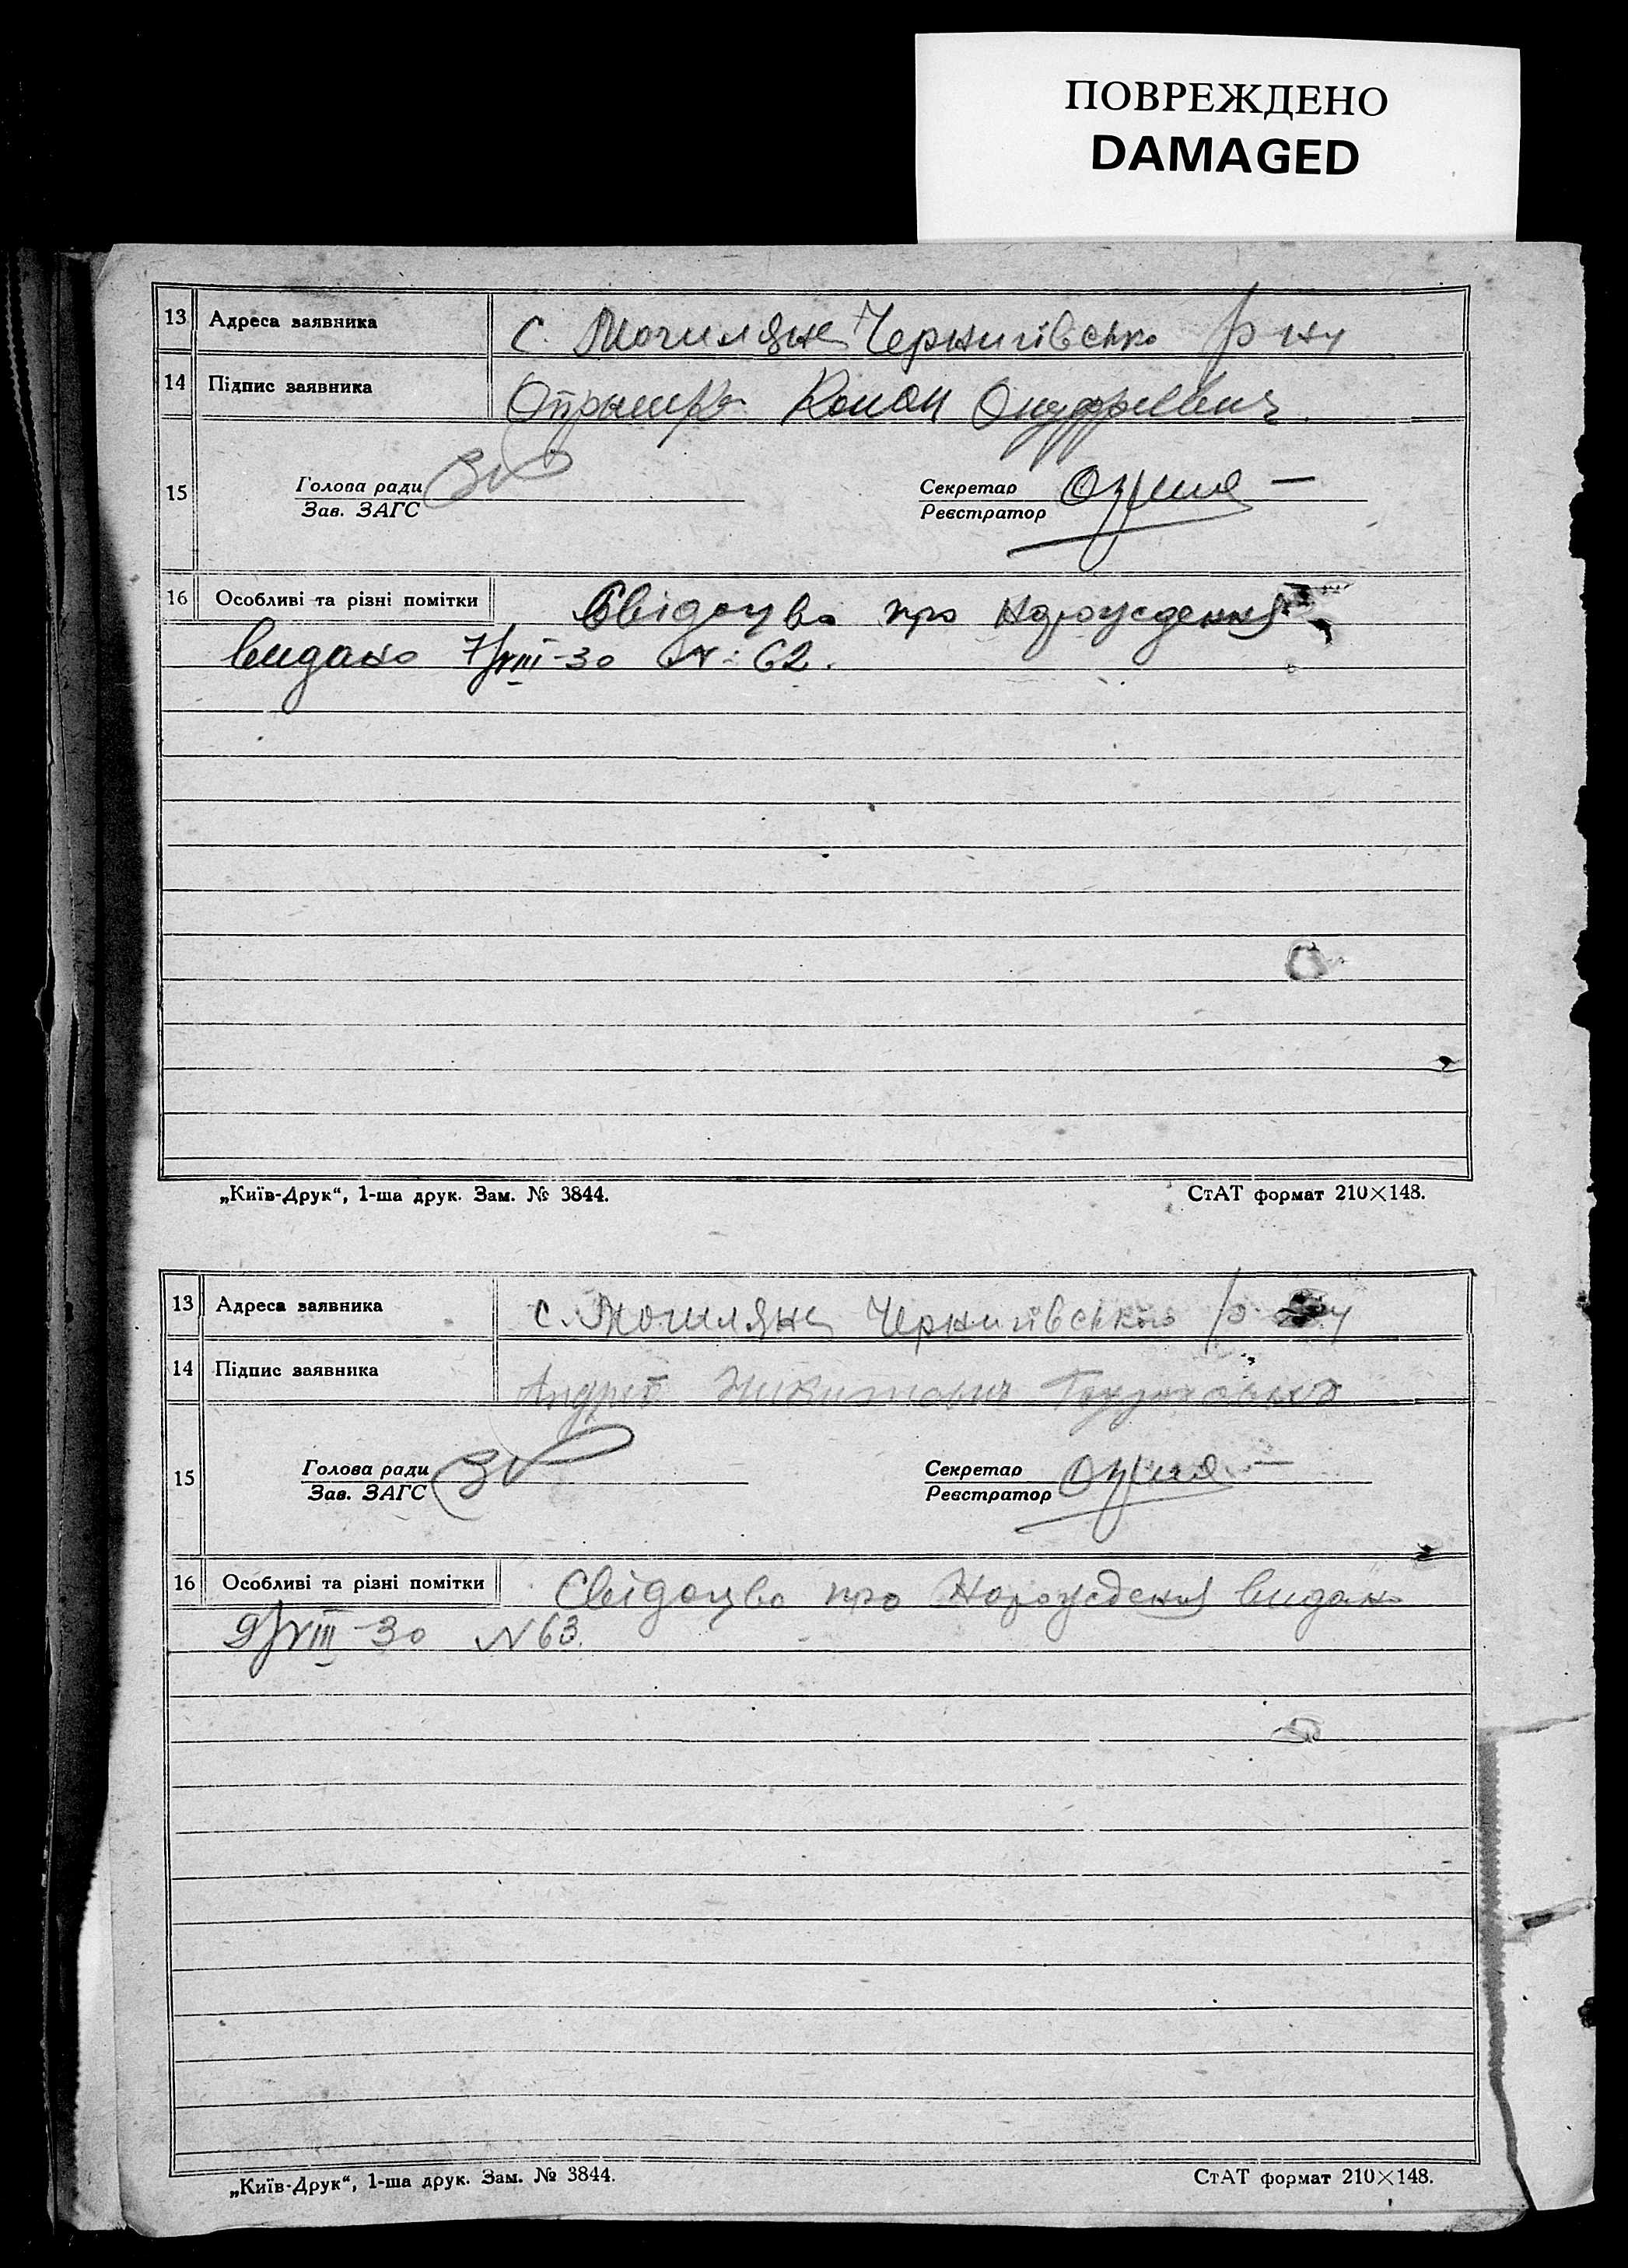 ПОВРЕЖДЕНО
DAMAGED
13 Адреса заявника с. Могиляне Чернигівсько р ну
14 Підпис заявника Конон Онуфрієвич
15 Голова ради Секретар
Зав. ЗАГС Реєстратор
16 Особливі та різні помітки Свідоцво про Народження
видано 7/VIII-30 №: 62.
„Київ-Друк“, 1-ша друк. Зам. № 3844. СтАТ формат 210×148.
13 Адреса заявника с. Могиляне Чернигівського р
14 Підпис заявника Андрій Никитович
15 Голова ради Секретар
Зав. ЗАГС Реєстратор
16 Особливі та різні помітки Свідоцво про Народженя видано
9/VIII-30 N 63.
„Київ-Друк“, 1-ша друк. Зам. № 3844. СтАТ формат 210×148.